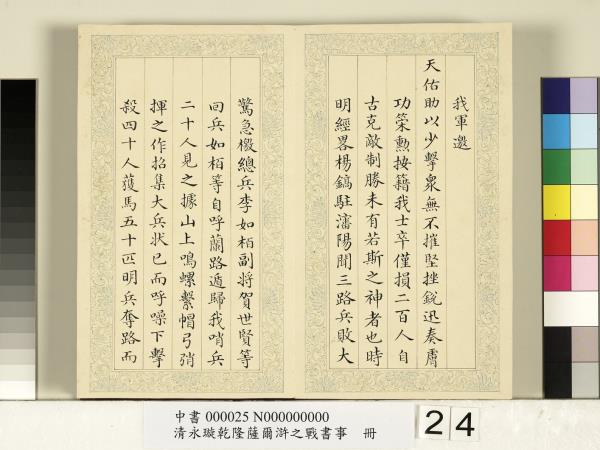 我軍邀
天佑助以少擊眾無不摧堅挫銳迅奏膚
功策勲按籍我士卒僅損二百人自
古克敵制勝未有若斯之神者也時
明經畧楊鎬駐瀋陽聞三路兵敗大
驚急檄總兵李如栢副將賀世賢等
回兵如栢等自呼蘭路遁歸我哨兵
二十人見之據山上鳴螺繫帽弓弰
揮之作招集大兵狀已而呼噪下擊
殺四十人獲馬五十匹明兵奪路而
中書 000025 N000000000
清永璇乾隆薩爾滸之戰書事 冊
24